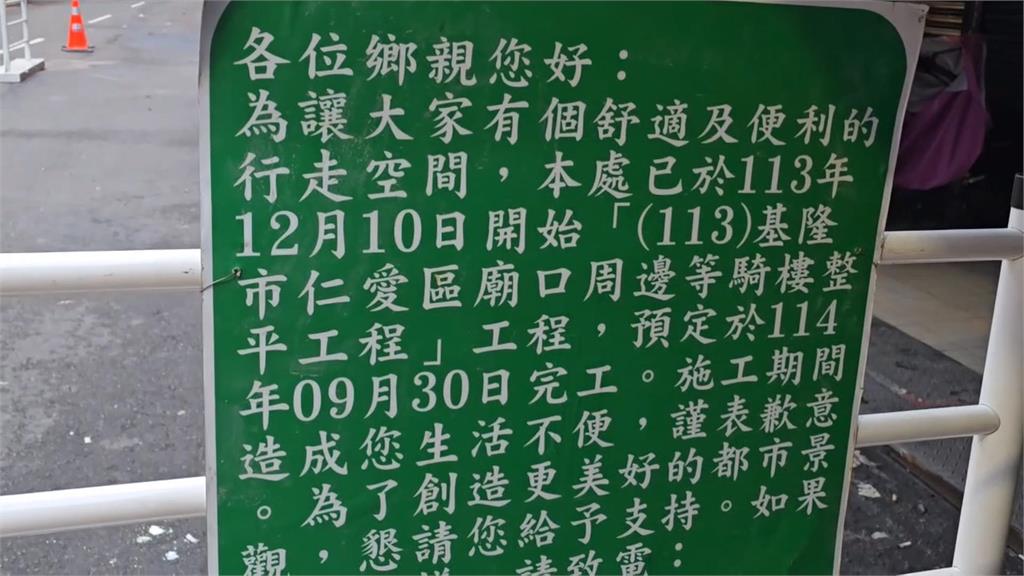 各位鄉親您好：
為讓大家有個舒適及便利的
行走空間，本處已於113年
12月10日開始「(113)基隆
市仁愛區廟口周邊等騎樓整
平工程」工程，預定於114
年09月30日完工。施工期間
造成您生活不便，謹表歉意
。為了創造更美好的都市景
觀，懇請您給予支持。如果
請致電：